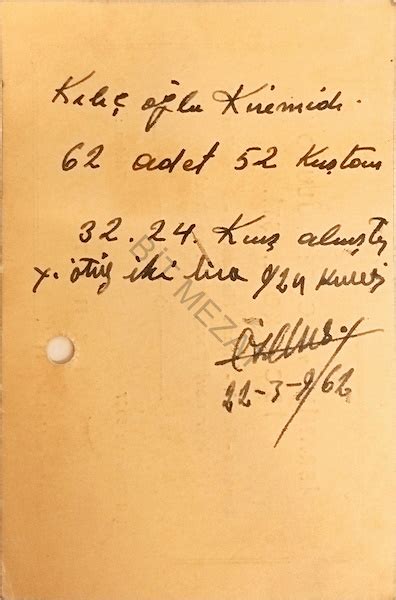 Kılıç oğlu Kiremidi.
62 adet 52 Kuştan
32.24. Kuruş almıştır
y. otuz iki lira /24 kuruş
22-3-962
BİT MEZAT